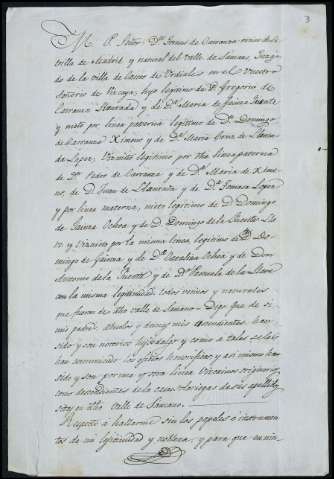 3
M. P. Señor: Dn. Tomas de Carranza vecino de la
villa de Madrid y natural del Valle de Samano, Juzga-
do de la villa de Castro de Urdiales en el Nuevo
Señorio de Vizcaya; hijo legitimo de Dn. Gregorio de
Carranza y de Da. Maria de Jaima Puente
y nieto por linea paterna legitimo de Dn. Domingo
de Carranza Ximeno y de Da. Maria Cruz de Llama
Lopez; Viznieto legitimo por dha linea paterna
de Dn. Pedro de Carranza y de Da. Maria de Xime-
no, de Dn. Juan de y de Da. Tomasa Lopez
y por linea materna, nieto legitimo de Dn. Domingo
de Jaima Ochoa y de Da. Dominga de la Puente
y Viznieto por la misma linea, legitimo de Dn. Do-
mingo de Jaima y de Da. Catalina Ochoa y de Don
Antonio de la Puente y de Da. Manuela de la
con la misma legitimidad: todos vecinos y naturales
que fueron de dho valle de Samano = Digo que de si
mis padres Abuelos y demas mis ascendientes han
sido y son notorios hijosdalgo y como a tales se les
han comunicado los oficios honorificos y asi mismo han
sido y son por una y otra linea Vizcainos originarios,
como descendientes de la casa solariega de sus apellidos
sitas en dho Valle de Samano.
Respecto a hallarme sin los papeles e instrumen-
tos de mi legitimidad y nobleza, y para que en nin-